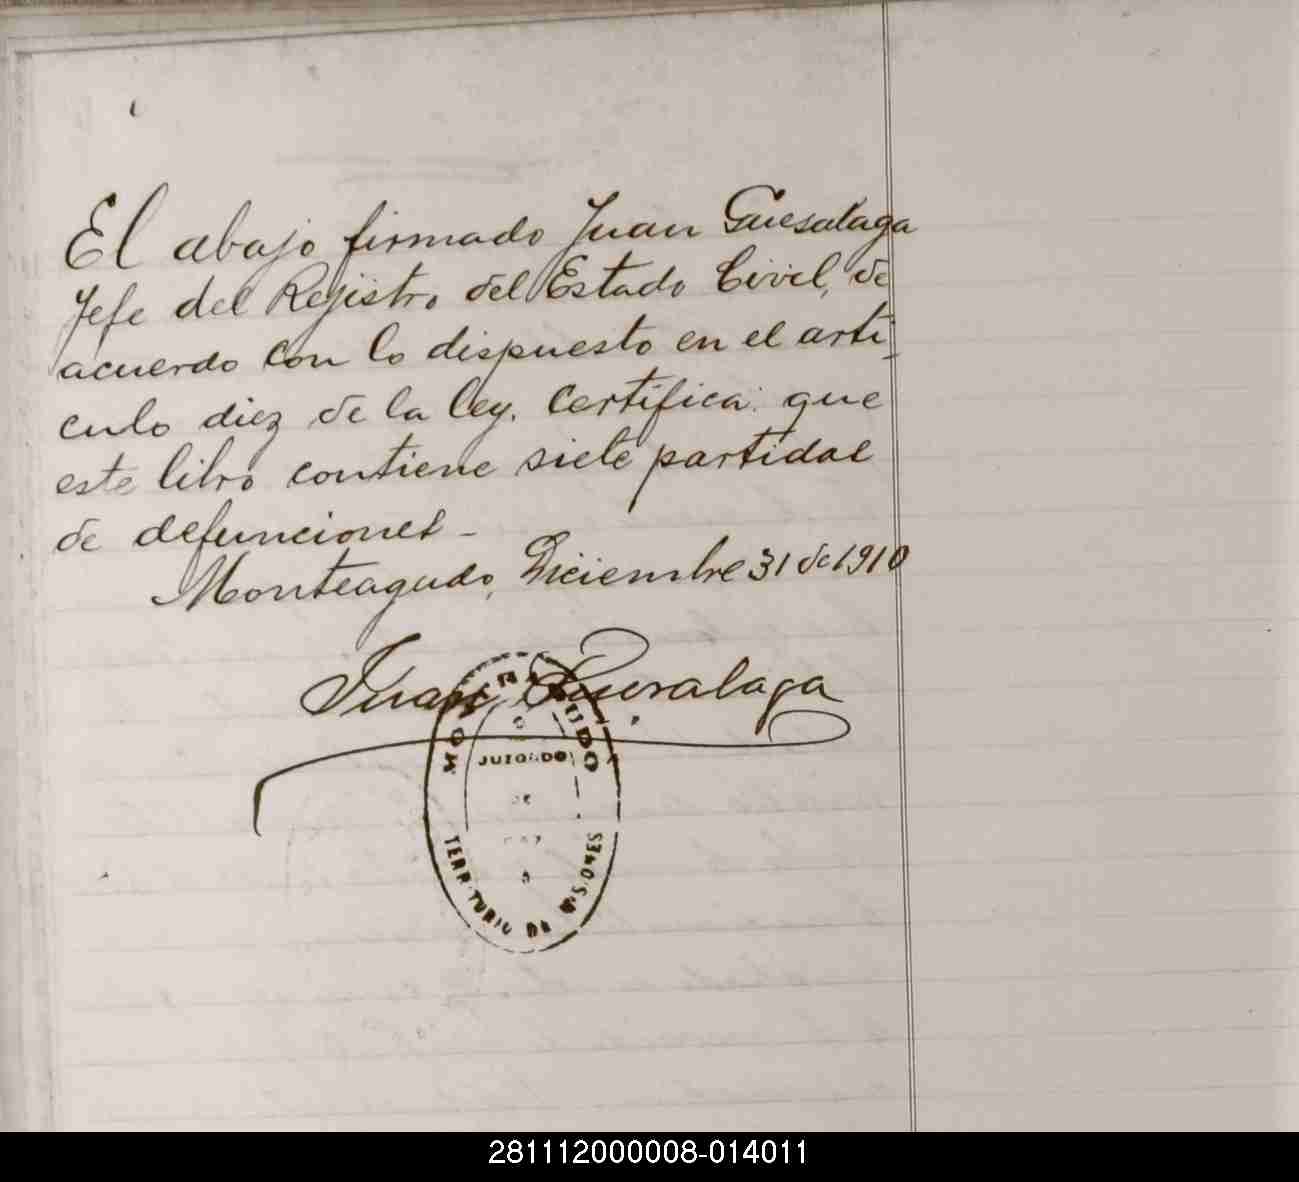 El abajo firmado Juan Guesalaga
Jefe del Rejistro del Estado Civil, de
acuerdo con lo dispuesto en el arti-
culo diez de la ley. Certifica: que
este libro contiene siete partidas
de defunciones -
Monteagudo, Diciembre 31 de 1910
Juan Guesalaga
MONTEAGUDO
JUZGADO
DE
PAZ
TERRITORIO DE MISIONES
281112000008-014011